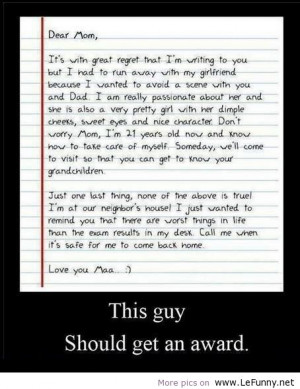 Dear Mom,
It's with great regret that I'm writing to you
but I had to run away with my girlfriend
because I wanted to avoid a scene with you
and Dad. I am really passionate about her and
she is also a very pretty girl with her dimple
cheeks, sweet eyes and nice character. Don't
worry Mom, I'm 21 years old now and know
how to take care of myself. Someday, we'll come
to visit so that you can get to know your
grandchildren.
Just one last thing, none of the above is true!
I'm at our neighbor's house! I just wanted to
remind you that there are worst things in life
than the exam results in my desk. Call me when
it's safe for me to come back home.
Love you Maa... :)
This guy
Should get an award.
More pics on www.LeFunny.net